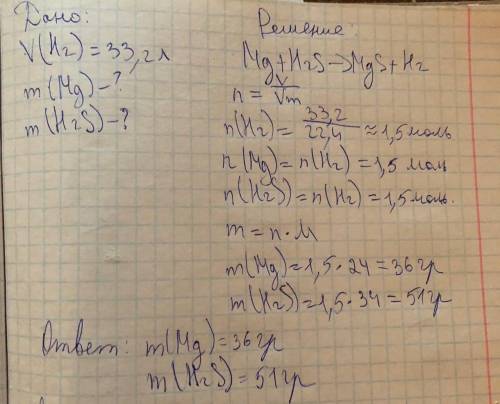 Дано:
V(H₂) = 33,2л
m(Mg) - ?
m(H₂S) - ?
Решение:
Mg + H₂S → MgS + H₂
n = V/Vm
n(H₂) = 33,2/22,4 ≈ 1,5 моль
n(Mg) = n(H₂) = 1,5 моль
n(H₂S) = n(H₂) = 1,5 моль.
m = n · M
m(Mg) = 1,5 · 24 = 36 гр
m(H₂S) = 1,5 · 34 = 51 гр
Ответ: m(Mg) = 36 гр
m(H₂S) = 51 гр